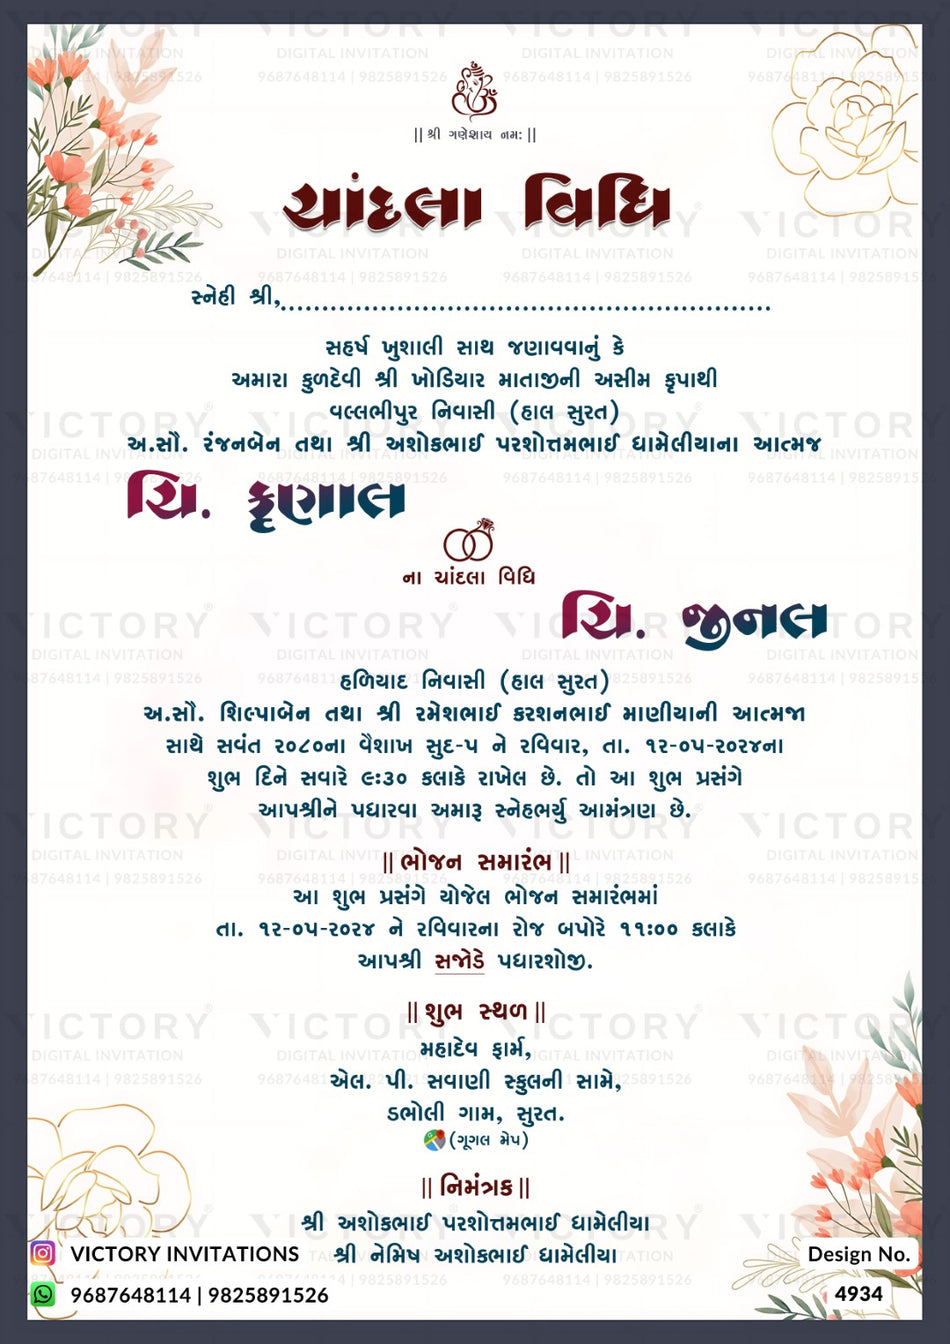 || શ્રી ગણેશાય નમઃ ||
ચાંદલા વિધિ
સ્નેહી શ્રી,............................................................
સહર્ષ ખુશાલી સાથ જણાવવાનું કે
અમારા કુળદેવી શ્રી ખોડિયાર માતાજીની અસીમ કૃપાથી
વલ્લભીપુર નિવાસી (હાલ સુરત)
અ.સૌ. રંજનબેન તથા શ્રી અશોકભાઈ પરશોત્તમભાઈ ધામેલીયાના આત્મજ
ચિ. કૃણાલ
ના ચાંદલા વિધિ
ચિ. જીનલ
હળિયાદ નિવાસી (હાલ સુરત)
અ.સૌ. શિલ્પાબેન તથા શ્રી રમેશભાઈ કરશનભાઈ માણીયાની આત્મજા
સાથે સવંત ૨૦૮૦ના વૈશાખ સુદ-૫ ને રવિવાર, તા. ૧૨-૦૫-૨૦૨૪ના
શુભ દિને સવારે ૯:૩૦ કલાકે રાખેલ છે. તો આ શુભ પ્રસંગે
આપશ્રીને પધારવા અમારૂ સ્નેહભર્યુ આમંત્રણ છે.
|| ભોજન સમારંભ ||
આ શુભ પ્રસંગે યોજેલ ભોજન સમારંભમાં
તા. ૧૨-૦૫-૨૦૨૪ ને રવિવારના રોજ બપોરે ૧૧:૦૦ કલાકે
આપશ્રી સજોડે પધારશોજી.
|| શુભ સ્થળ ||
મહાદેવ ફાર્મ,
એલ. પી. સવાણી સ્કુલની સામે,
ડભોલી ગામ, સુરત.
(ગૂગલ મેપ)
|| નિમંત્રક ||
શ્રી અશોકભાઈ પરશોત્તમભાઈ ધામેલીયા
શ્રી નેમિષ અશોકભાઈ ધામેલીયા
VICTORY INVITATIONS
9687648114 | 9825891526
Design No.
4934
VICTORY
DIGITAL INVITATION
9687648114 | 9825891526